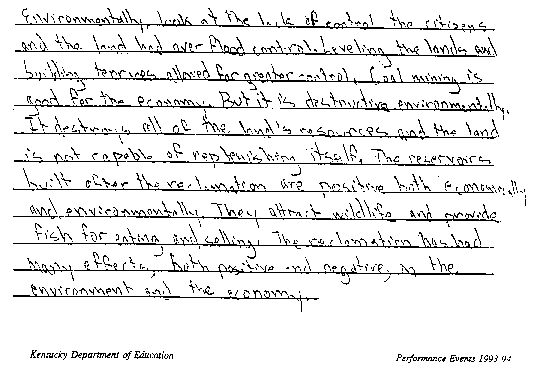 Environmentally, look at the lack of control the citizens
and the land had over flood control. Leveling the lands and
building terraces allowed for greater control. Coal mining is
good for the economy. But it is destructive environmentally.
It destroys all of the land's resources and the land
is not capable of replenishing itself. The reservoirs
built after the reclamation are positive both economically
and environmentally. They attract wildlife and provide
fish for eating and selling. The reclamation has had
many effects, both positive and negative, on the
environment and the economy.
Kentucky Department of Education
Performance Events 1993-94